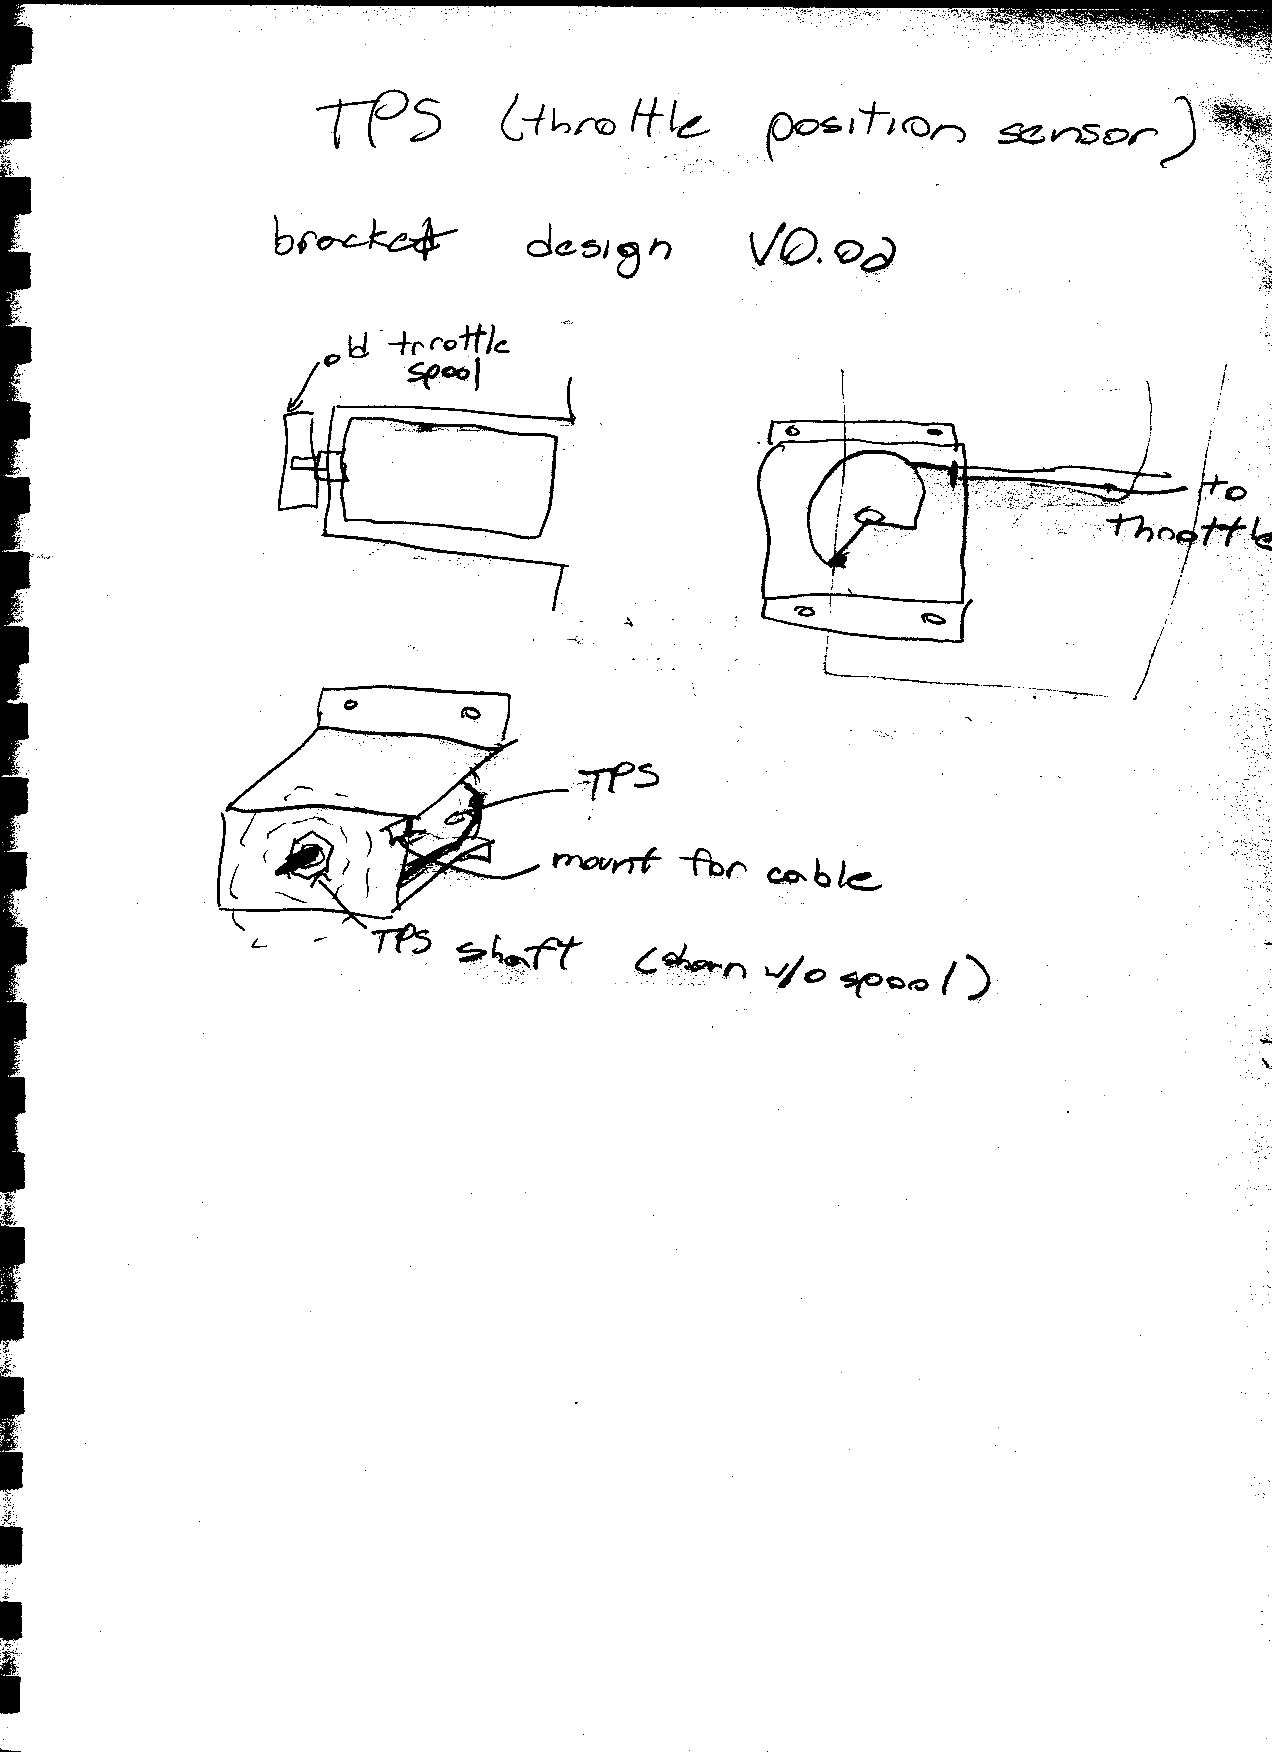 TPS (throttle position sensor)
bracket design V0.02
old trrottle
spool
to
throttle
TPS
mount for cable
TPS shaft (shown w/o spool)